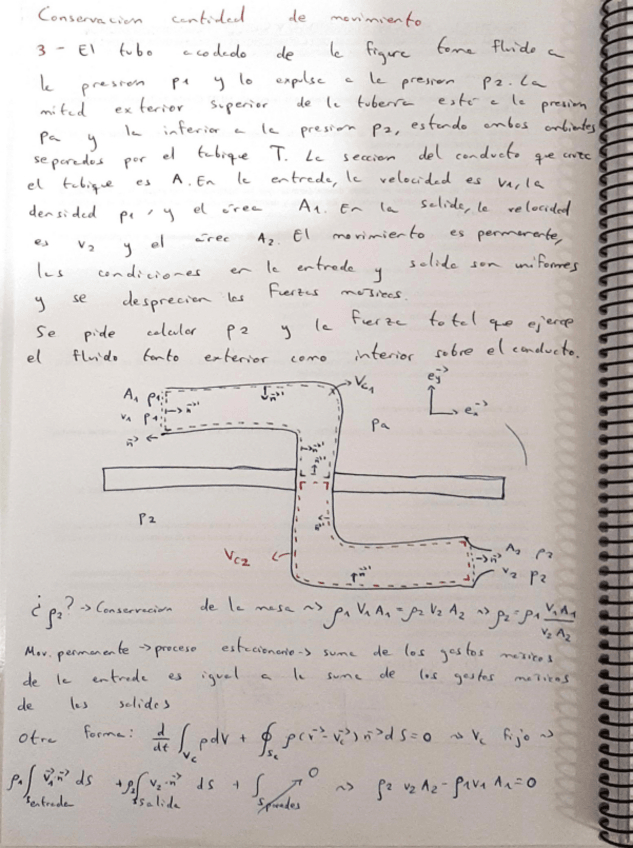 Conservacion cantidad de movimiento
3 - El tubo acodado de la figura toma fluido a
la presion p1 y lo expulsa a la presion p2. La
mitad exterior superior de la tuberia está a la presion
pa y la inferior a la presion p2, estando ambos ambientes
separados por el tabique T. La seccion del conducto que cruza
el tabique es A. En la entrada, la velocidad es v1, la
densidad ρ1, y el área A1. En la salida, la velocidad
es v2 y el área A2. El movimiento es permanente,
las condiciones en la entrada y salida son uniformes
y se desprecian las fuerzas másicas.
Se pide calcular ρ2 y la fuerza total que ejerce
el fluido tanto exterior como interior sobre el conducto.
A1 p1
v1 ρ1
n⃗
n⃗''
n⃗''
Vc1
pa
ey⃗
ex⃗
p2
Vc2
n⃗''
n⃗
A2 p2
v2 ρ2
¿ρ2? → Conservacion de la masa ⇝ ρ1 V1 A1 = ρ2 V2 A2 ⇝ ρ2 = ρ1 V1 A1 / V2 A2
Mov. permanente → proceso estacionario → suma de los gastos másicos
de la entrada es igual a la suma de los gastos másicos
de las salidas
Otra forma: d/dt ∫Vc ρdV + ∮Sc ρ(v⃗ - vc⃗) n⃗ dS = 0 ⇝ Vc fijo ⇝
ρ1 ∫Sentrada v1⃗·n⃗ dS + ρ2 ∫Ssalida v2·n⃗ dS + ∫Sparedes → 0 ⇝ ρ2 v2 A2 - ρ1 v1 A1 = 0